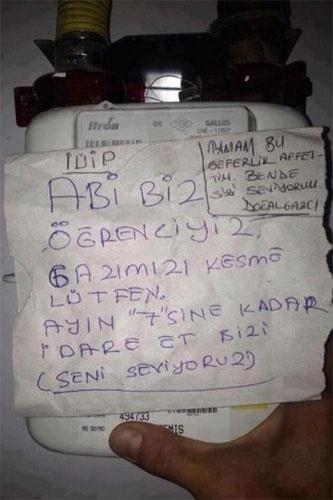 Itron
G4
GALLUS
IÜİP
TAMAM BU
SEFERLİK AFFET-
TİM. BENDE
SİZİ SEVİYORUM.
DOĞALGAZCI
ABİ BİZ
ÖĞRENCİYİZ,
GAZIMIZI KESME
LÜTFEN.
AYIN "7"SİNE KADAR
İDARE ET BİZİ
(SENİ SEVİYORUZ)
494733